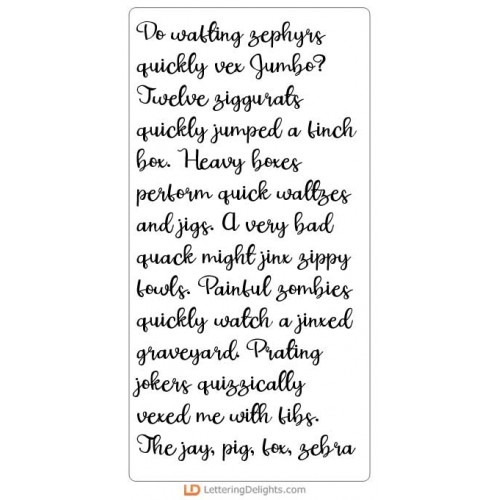 Do wafting zephyrs
quickly vex Jumbo?
Twelve ziggurats
quickly jumped a finch
box. Heavy boxes
perform quick waltzes
and jigs. A very bad
quack might jinx zippy
fowls. Painful zombies
quickly watch a jinxed
graveyard. Prating
jokers quizzically
vexed me with fibs.
The jay, pig, fox, zebra
LD LetteringDelights.com